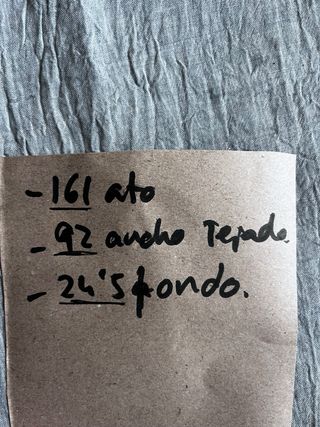 - 161 alto
- 92 ancho Tejado.
- 24'5 fondo.